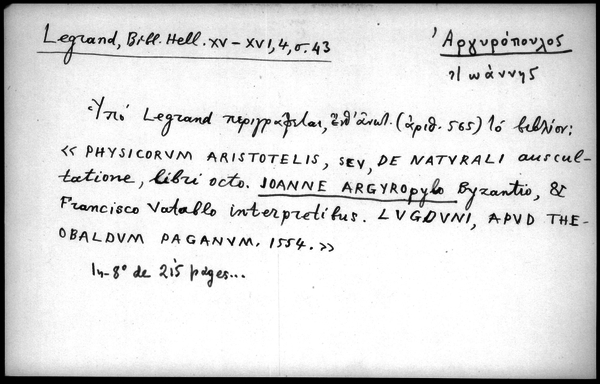 Legrand, Bibl. Hell. XV-XVI, 4, σ. 43
Ἀργυρόπουλος
Ἰωάννης
Ὑπό Legrand περιγράφεται, ἔνθ' ἀνωτ. (ἀριθ. 565) τό βιβλίον:
« PHYSICORVM ARISTOTELIS, SEV, DE NATVRALI auscul-
tatione, libri octo. JOANNE ARGYROpylo Byzantio, &
Francisco Vatablo interpretibus. LVGDVNI, APVD THE-
OBALDVM PAGANVM. 1554. »
In-8° de 215 pages...